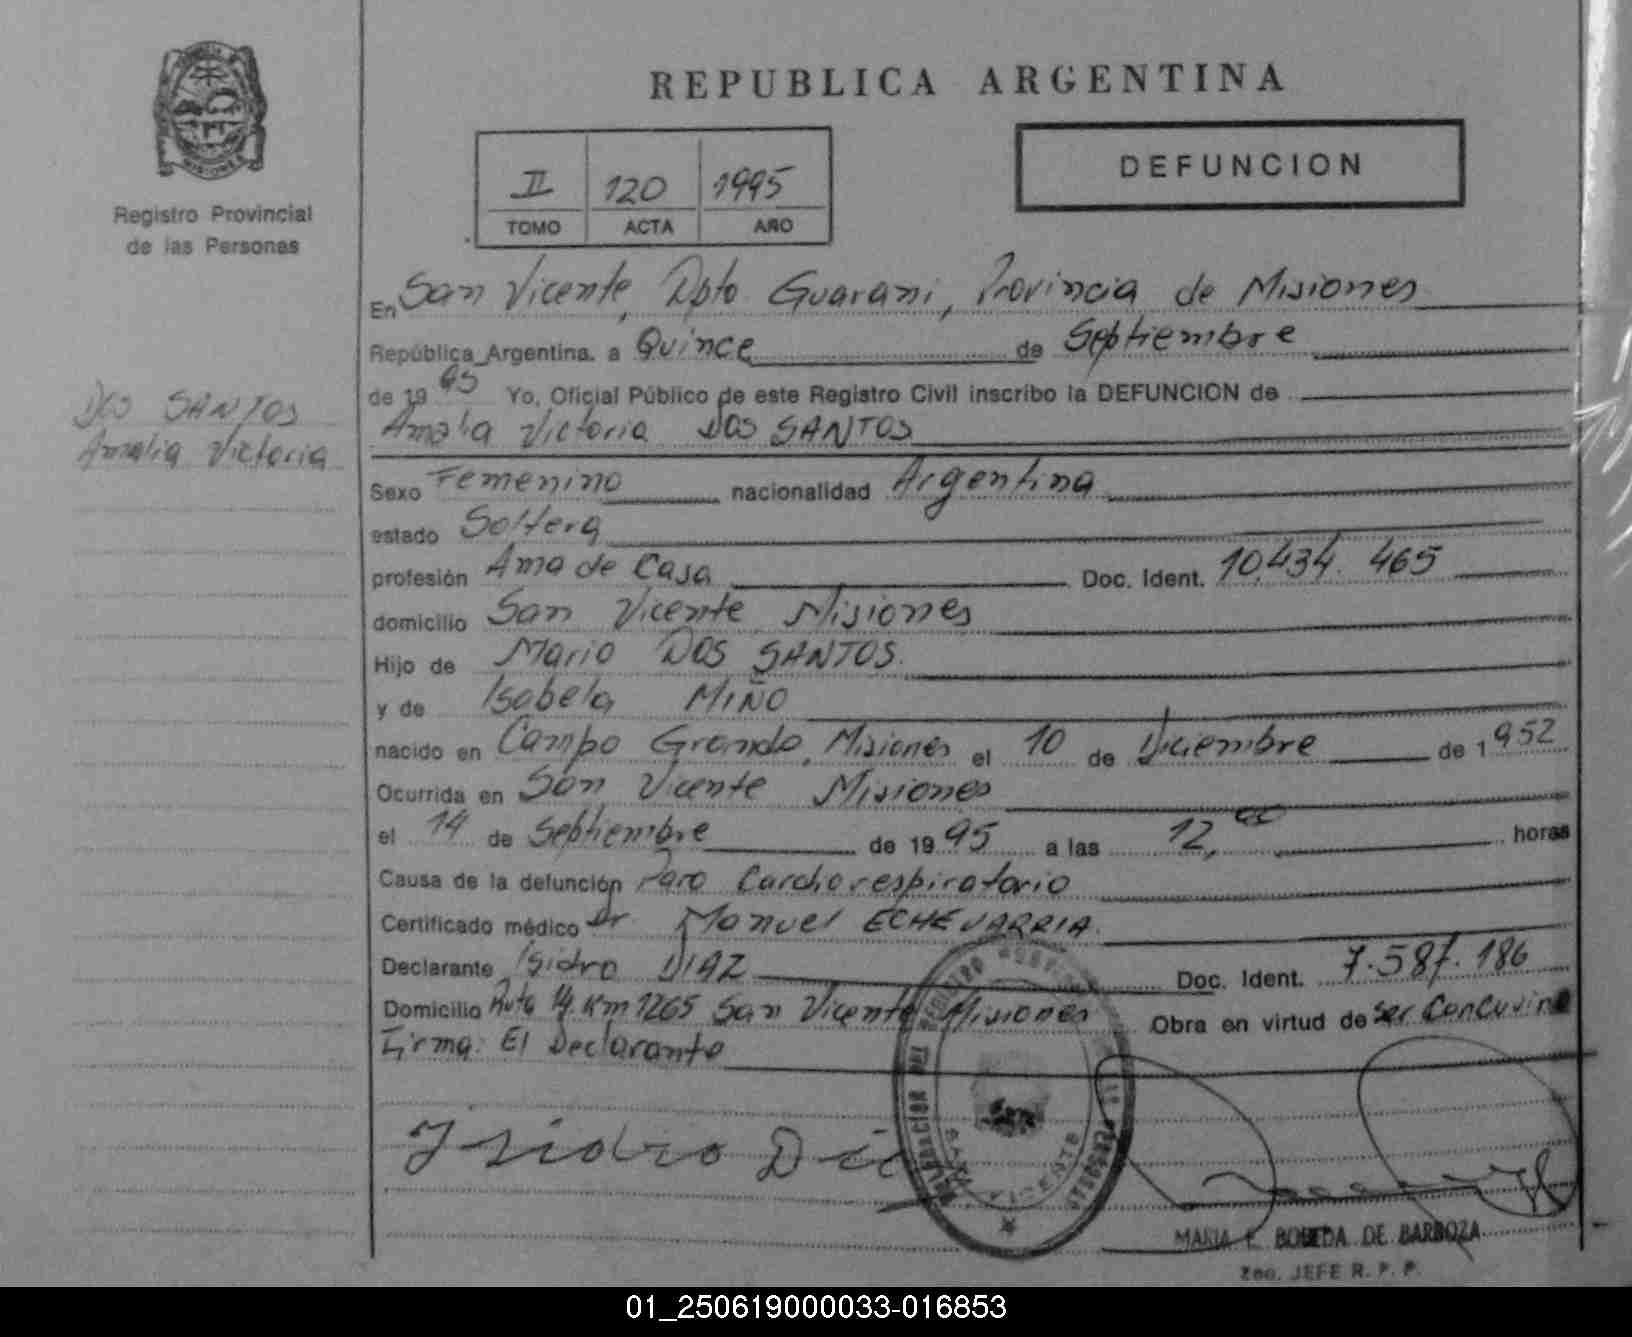 REPUBLICA ARGENTINA
DEFUNCION
II 120 1995
TOMO ACTA AÑO
MISIONES
Registro Provincial
de las Personas
DOS SANTOS
Amalia Victoria
En San Vicente, Dpto Guarani, Provincia de Misiones
República Argentina, a Quince de Septiembre
de 1995 Yo, Oficial Público de este Registro Civil inscribo la DEFUNCION de
Amalia Victoria DOS SANTOS
Sexo Femenino nacionalidad Argentina
estado Soltera
profesión Ama de Casa Doc. Ident. 10.434.465
domicilio San Vicente Misiones
Hijo de Mario DOS SANTOS.
y de Isabela MIÑO
nacido en Campo Grande, Misiones el 10 de Diciembre de 1952
Ocurrida en San Vicente Misiones
el 14 de Septiembre de 1995 a las 12,00 horas
Causa de la defunción Paro Cardiorespiratorio
Certificado médico Dr. Manuel ECHEVARRIA.
Declarante Isidro DIAZ Doc. Ident. 7.587.186
Domicilio Ruta 14 Km 1265 San Vicente Misiones Obra en virtud de ser Concuvino
Firma: El Declarante
Isidro Di
DELEGACION DEL REGISTRO
SAN VICENTE
MARIA E. BOBEDA DE BARBOZA
2do. JEFE R. P. P.
01_250619000033-016853